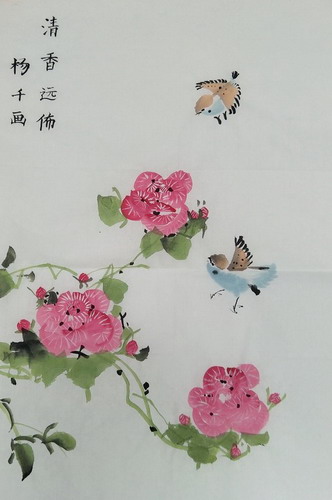 清香远佈
杨千画